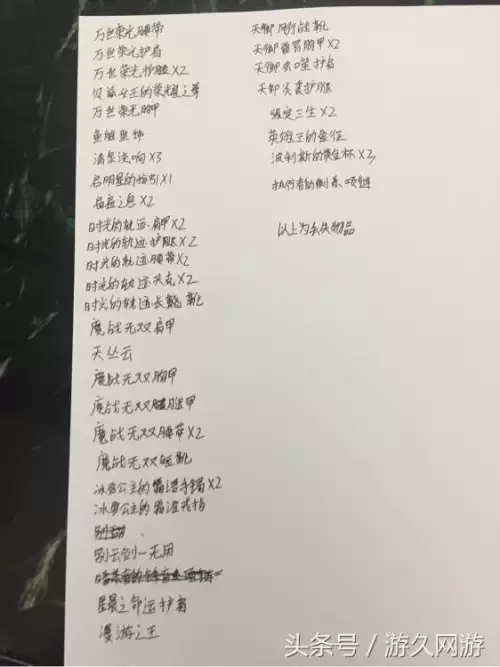 万世荣光腰带
万世荣光护肩
万世荣光护腿X2
贝兹女王的荣耀皇之华
万世荣光胸甲
鱼雅鱼饰
清泉流响X3
启明星的指引X1
启夜之息X2
时光的轨迹·肩甲X2
时光的轨迹·护腿X2
时光的轨迹·腰带X2
时光的轨迹·夹克X2
时光的轨迹·长靴
魔战无双肩甲
天丛云
魔战无双胸甲
魔战无双腿甲
魔战无双腰带X2
魔战无双短靴
冰雪公主的霜滢手镯X2
冰雪公主的霜滢戒指
别云剑-无用
星晨之命运护肩
漫游之王
天御·风行战靴
天御·胸甲X2
天御·炎噬护肩
天御·炎袭护腿
缘定三生X2
英雄王的
波利斯的黄金杯X3
执行者的制裁项链
以上为丢失物品
头条号/游久网游